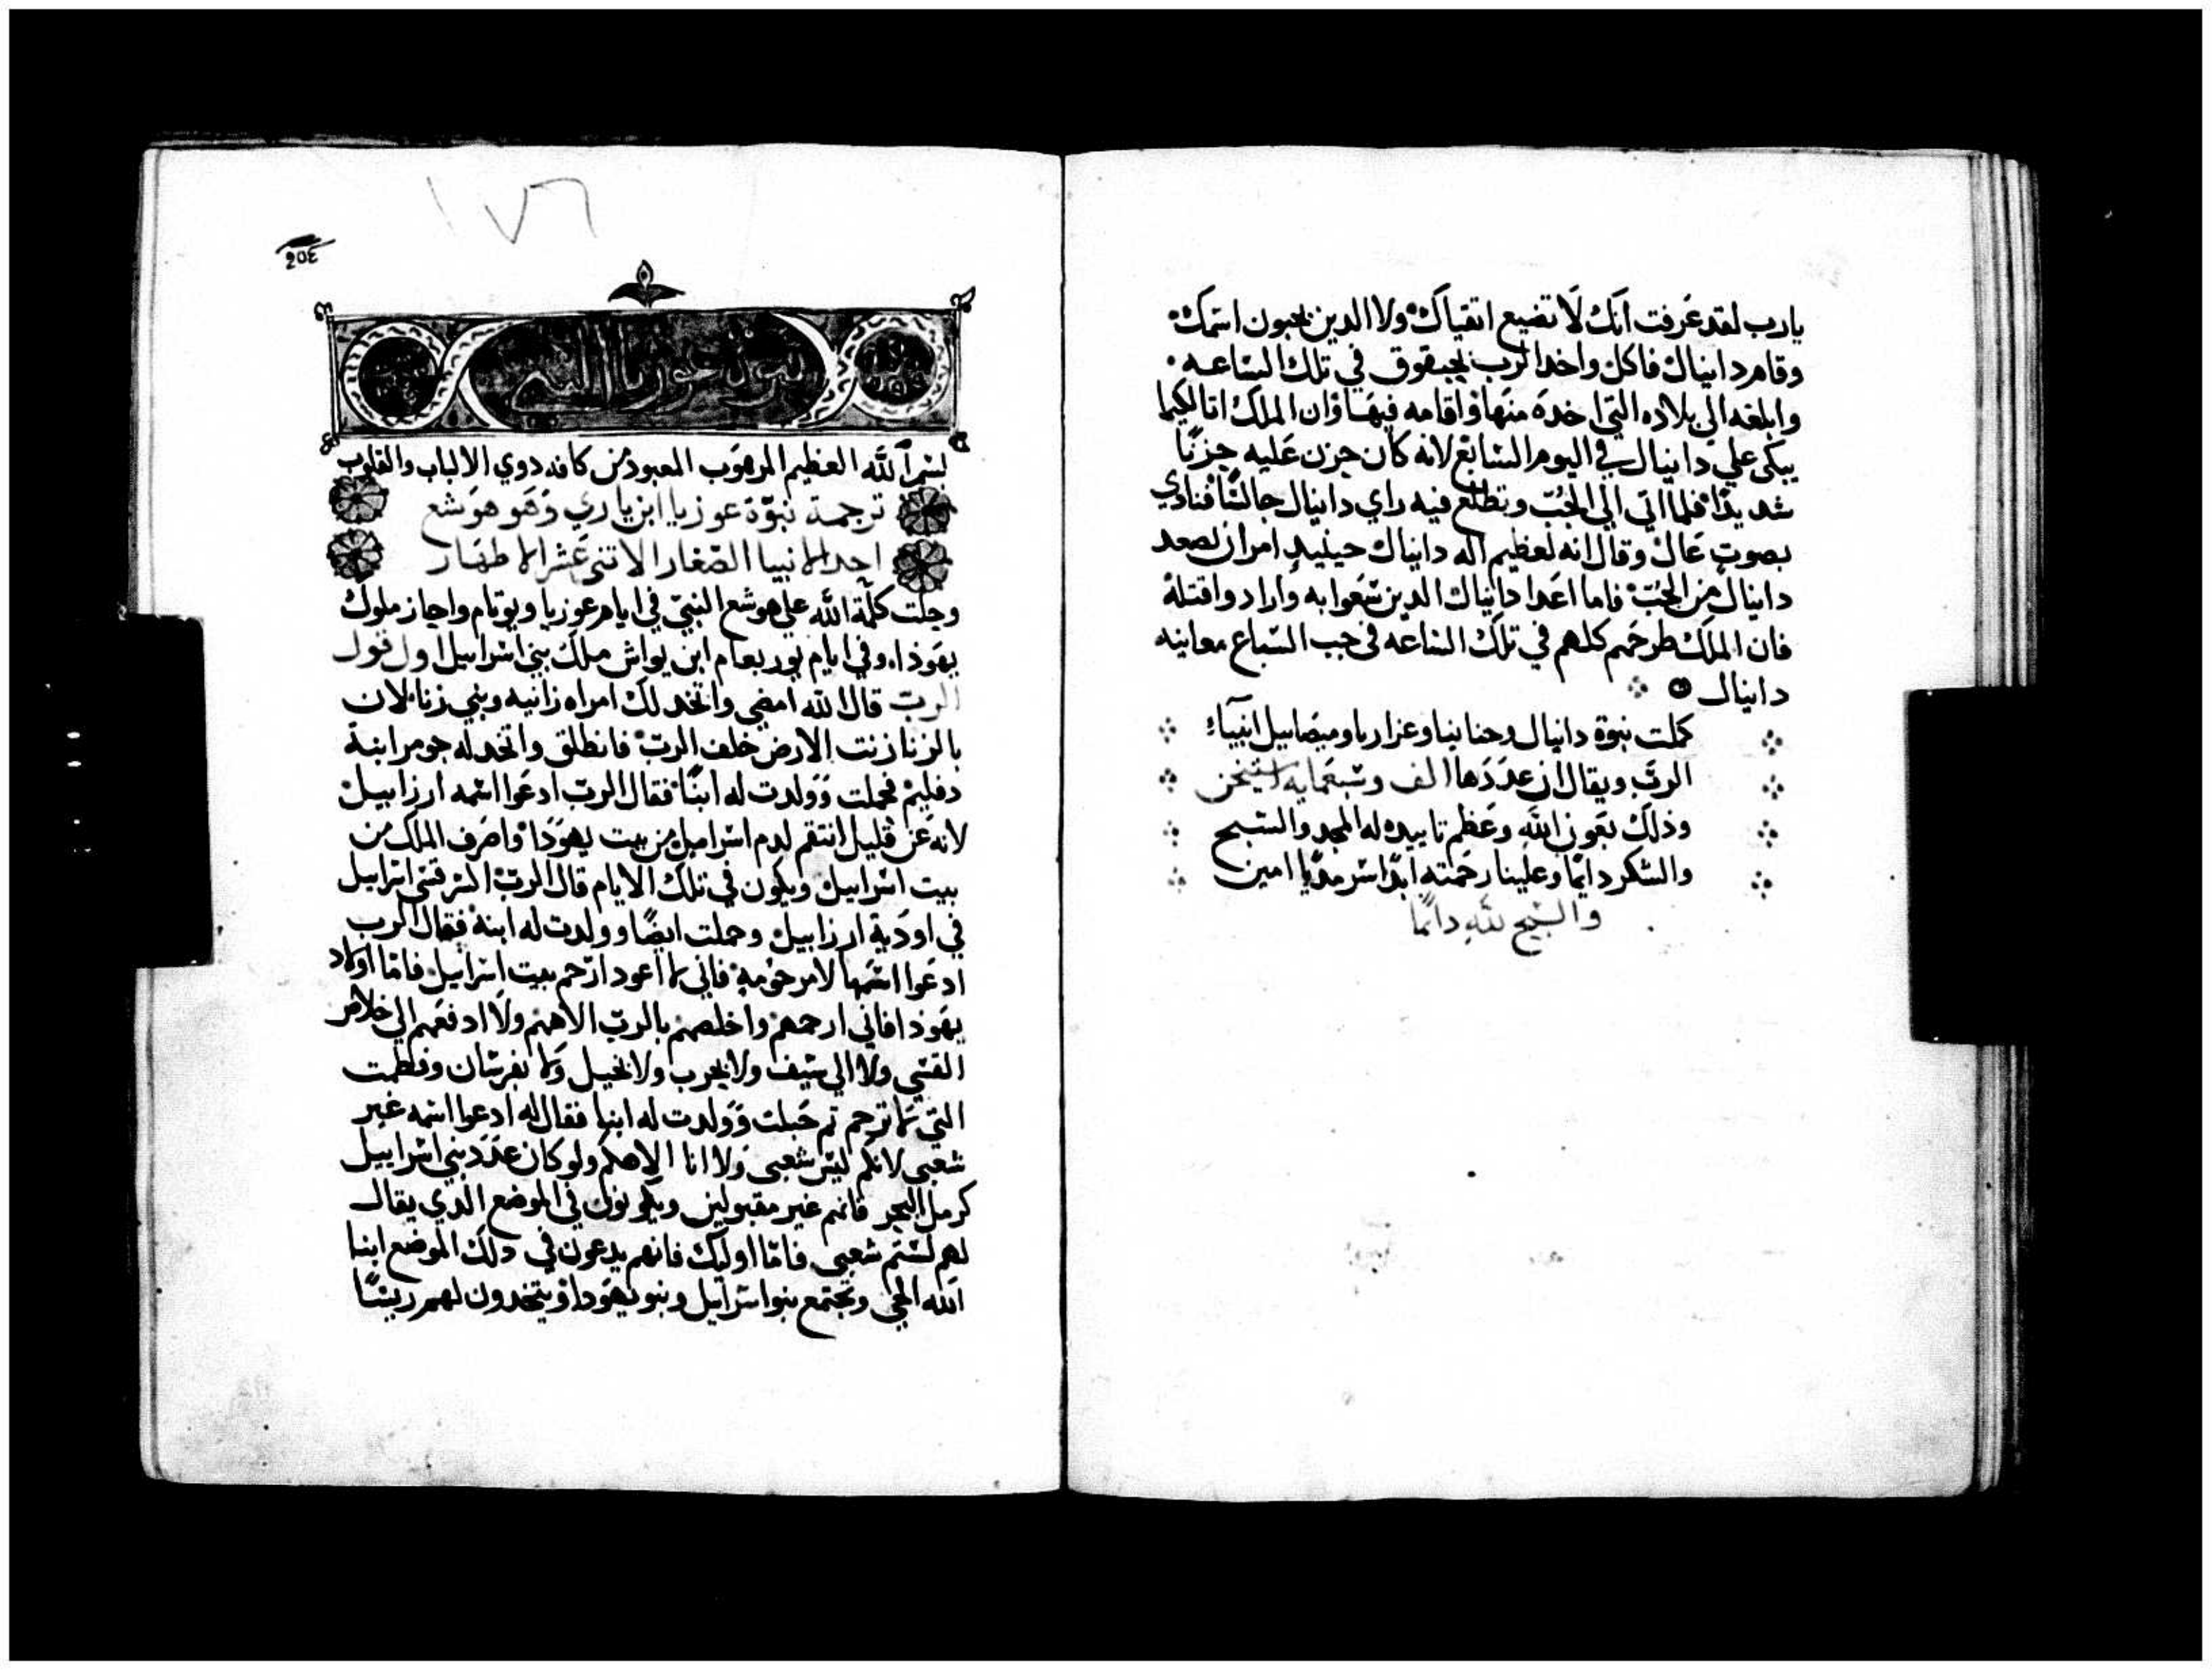 يارب لقد عَرفت انكُ لَا تضيع اتقياكْ ولا الدين يحبون اسمكْ
وقام دانيال فاكل واخد الرب لحبقوق في تلك الساعه
وابلغه الي بلاده التي اخده منها واقامه فيها وان الملك اتا لكيما
يبكي علي دانيال في اليوم السابع لانه كان حزن عليه حزنًا
شديدًا فلما اتي الي الجُبّ وتطلع فيه راي دانيال جالسًا فنادي
بصوتٍ عَالْ وقال انه لعظيم اله دانيال حينيدٍ امر ان يصعد
دانيال من الجُبّ فاما اعدا دانيال الدين سَعوا به وارادوا قتلهْ
فان الملك طرحَهم كلهم في تلك الساعه في جب السباع معاينه
دانيال
كملت نبوة دانيال وحنانيا وعزاريا وميصاييل انبيآء
الربّ ويقال ان عدَدَها الف وسبعمايه استيخن
وذلك بعَون الله وعَظم تاييده له المجد والتسبيح
والشكر دايمًا وعلينا رحَمته ابدًا سرمدًيا امين
والسبح لله دائمًا
١٧٦
205
نبوة عوزيا النبي
بسم الله العظيم المرهوب المعبود من كافه دوي الالباب والقلوب
ترجمة نبوّة عوزيا ابن ياري وَهَو هوَشع
احد الانبيا الصّغار الاتني عَشر الاطهَار
وحلت كلمة الله علي هوشع النبيّ في ايام عوزيا ويوتام واحاز ملوك
يهَودا وفي ايام يوربعام ابن يواش ملك بني اسراييل اول قول
الربّ قال الله امضي واتخد لك امراه زانيه وبني زناء لان
بالزنا زنت الارض خلف الربّ فانطلق واتخد له جومر ابنة
دفليمْ فحملت وَولدت له ابنًا فقال الربّ ادعَوا اسمه ارزاييلْ
لانه عَن قليل انتقم لدم اسراييل من بيت يهوَدَا واصَرف الملك من
بيت اسراييل ويكون في تلك الايام قال الربّ اكسر قسي اسراييل
في اودَية ارزاييل وحملت ايضًا وولدت له ابنة فقال الرب
ادعَوا اسمَها لامرحَومهْ فاني لا اعود ارحم بيت اسراييل فامّا اولاد
يهَودا فاني ارحمهم واخلصهم بالربّ الاههم ولَا ادفعَهم الي خلاص
القسّي ولا الي سيف ولا بحرب ولا بخيل ولا بفرسان وفطمت
التي لا ترحم تم حَبلت وَولدت له ابنا فقال له ادعوا اسمه غير
شعبي لانكم ليس شعبي وَلا انا الاهكم ولو كان عدَد بني اسراييل
كرمل البحر فانهم غير مقبولين ويكونون في الموضع الدي يقال
لهم لستم شعبي فامّا اوليك فانهم يدعون في دلك الموضع ابنا
الله الحي وتجتمع بنو اسراييل وبنو يهَودا ويتخدون لهم ريسًا